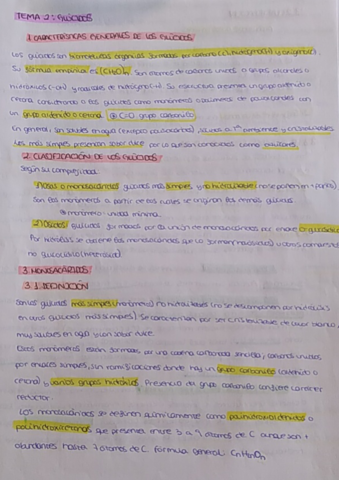 TEMA 2: GLÚCIDOS
1. CARACTERÍSTICAS GENERALES DE LOS GLÚCIDOS
Los glúcidos son biomoléculas orgánicas formadas por carbono (C), hidrógeno (H) y oxígeno (O).
Su fórmula empírica es (CH₂O)n. Son átomos de carbono unidos a grupos alcoholes o
hidroxilos (-OH) y radicales de hidrógeno (-H). Su estructura presenta un grupo aldehído o
cetona considerando a los glúcidos como monómeros o polímeros de
un grupo aldehído o cetona. C=O grupo carbonilo
En general, son solubles en agua (excepto polisacáridos), sólidos a Tª ambiente y cristalizables
Los más simples presentan sabor dulce por lo que son conocidos como azúcares.
2. CLASIFICACIÓN DE LOS GLÚCIDOS
Según su complejidad:
Osas o monosacáridos glúcidos más simples y no hidrolizables
Son los monómeros a partir de los cuales se originan los demás glúcidos
monómero unidad mínima
2) Ósidos glúcidos formados por la unión de monosacáridos por enlace O-glucosídico
Por hidrólisis se obtiene los monosacáridos que lo forman (holósidos) u otros compuestos
no glucídicos (heterósidos)
3. MONOSACÁRIDOS
3.1. DEFINICIÓN
Son los glúcidos más simples (monómeros) no hidrolizables (no se descomponen por hidrólisis
en otros glúcidos más simples). Se caracterizan por ser cristalizables de color blanco,
muy solubles en agua y con sabor dulce.
Estos monómeros están formados por una cadena carbonada sencilla, carbonos unidos
por enlaces simples, sin ramificaciones donde hay un grupo carbonilo (aldehído o
cetona) y varios grupos hidroxilos. Presencia de grupo carbonilo confiere carácter
reductor.
Los monosacáridos se definen químicamente como polihidroxialdehídos o
polihidroxicetonas, que presentan entre 3 a 7 átomos de C aunque son +
abundantes hasta 7 átomos de C fórmula general: CnH2nOn